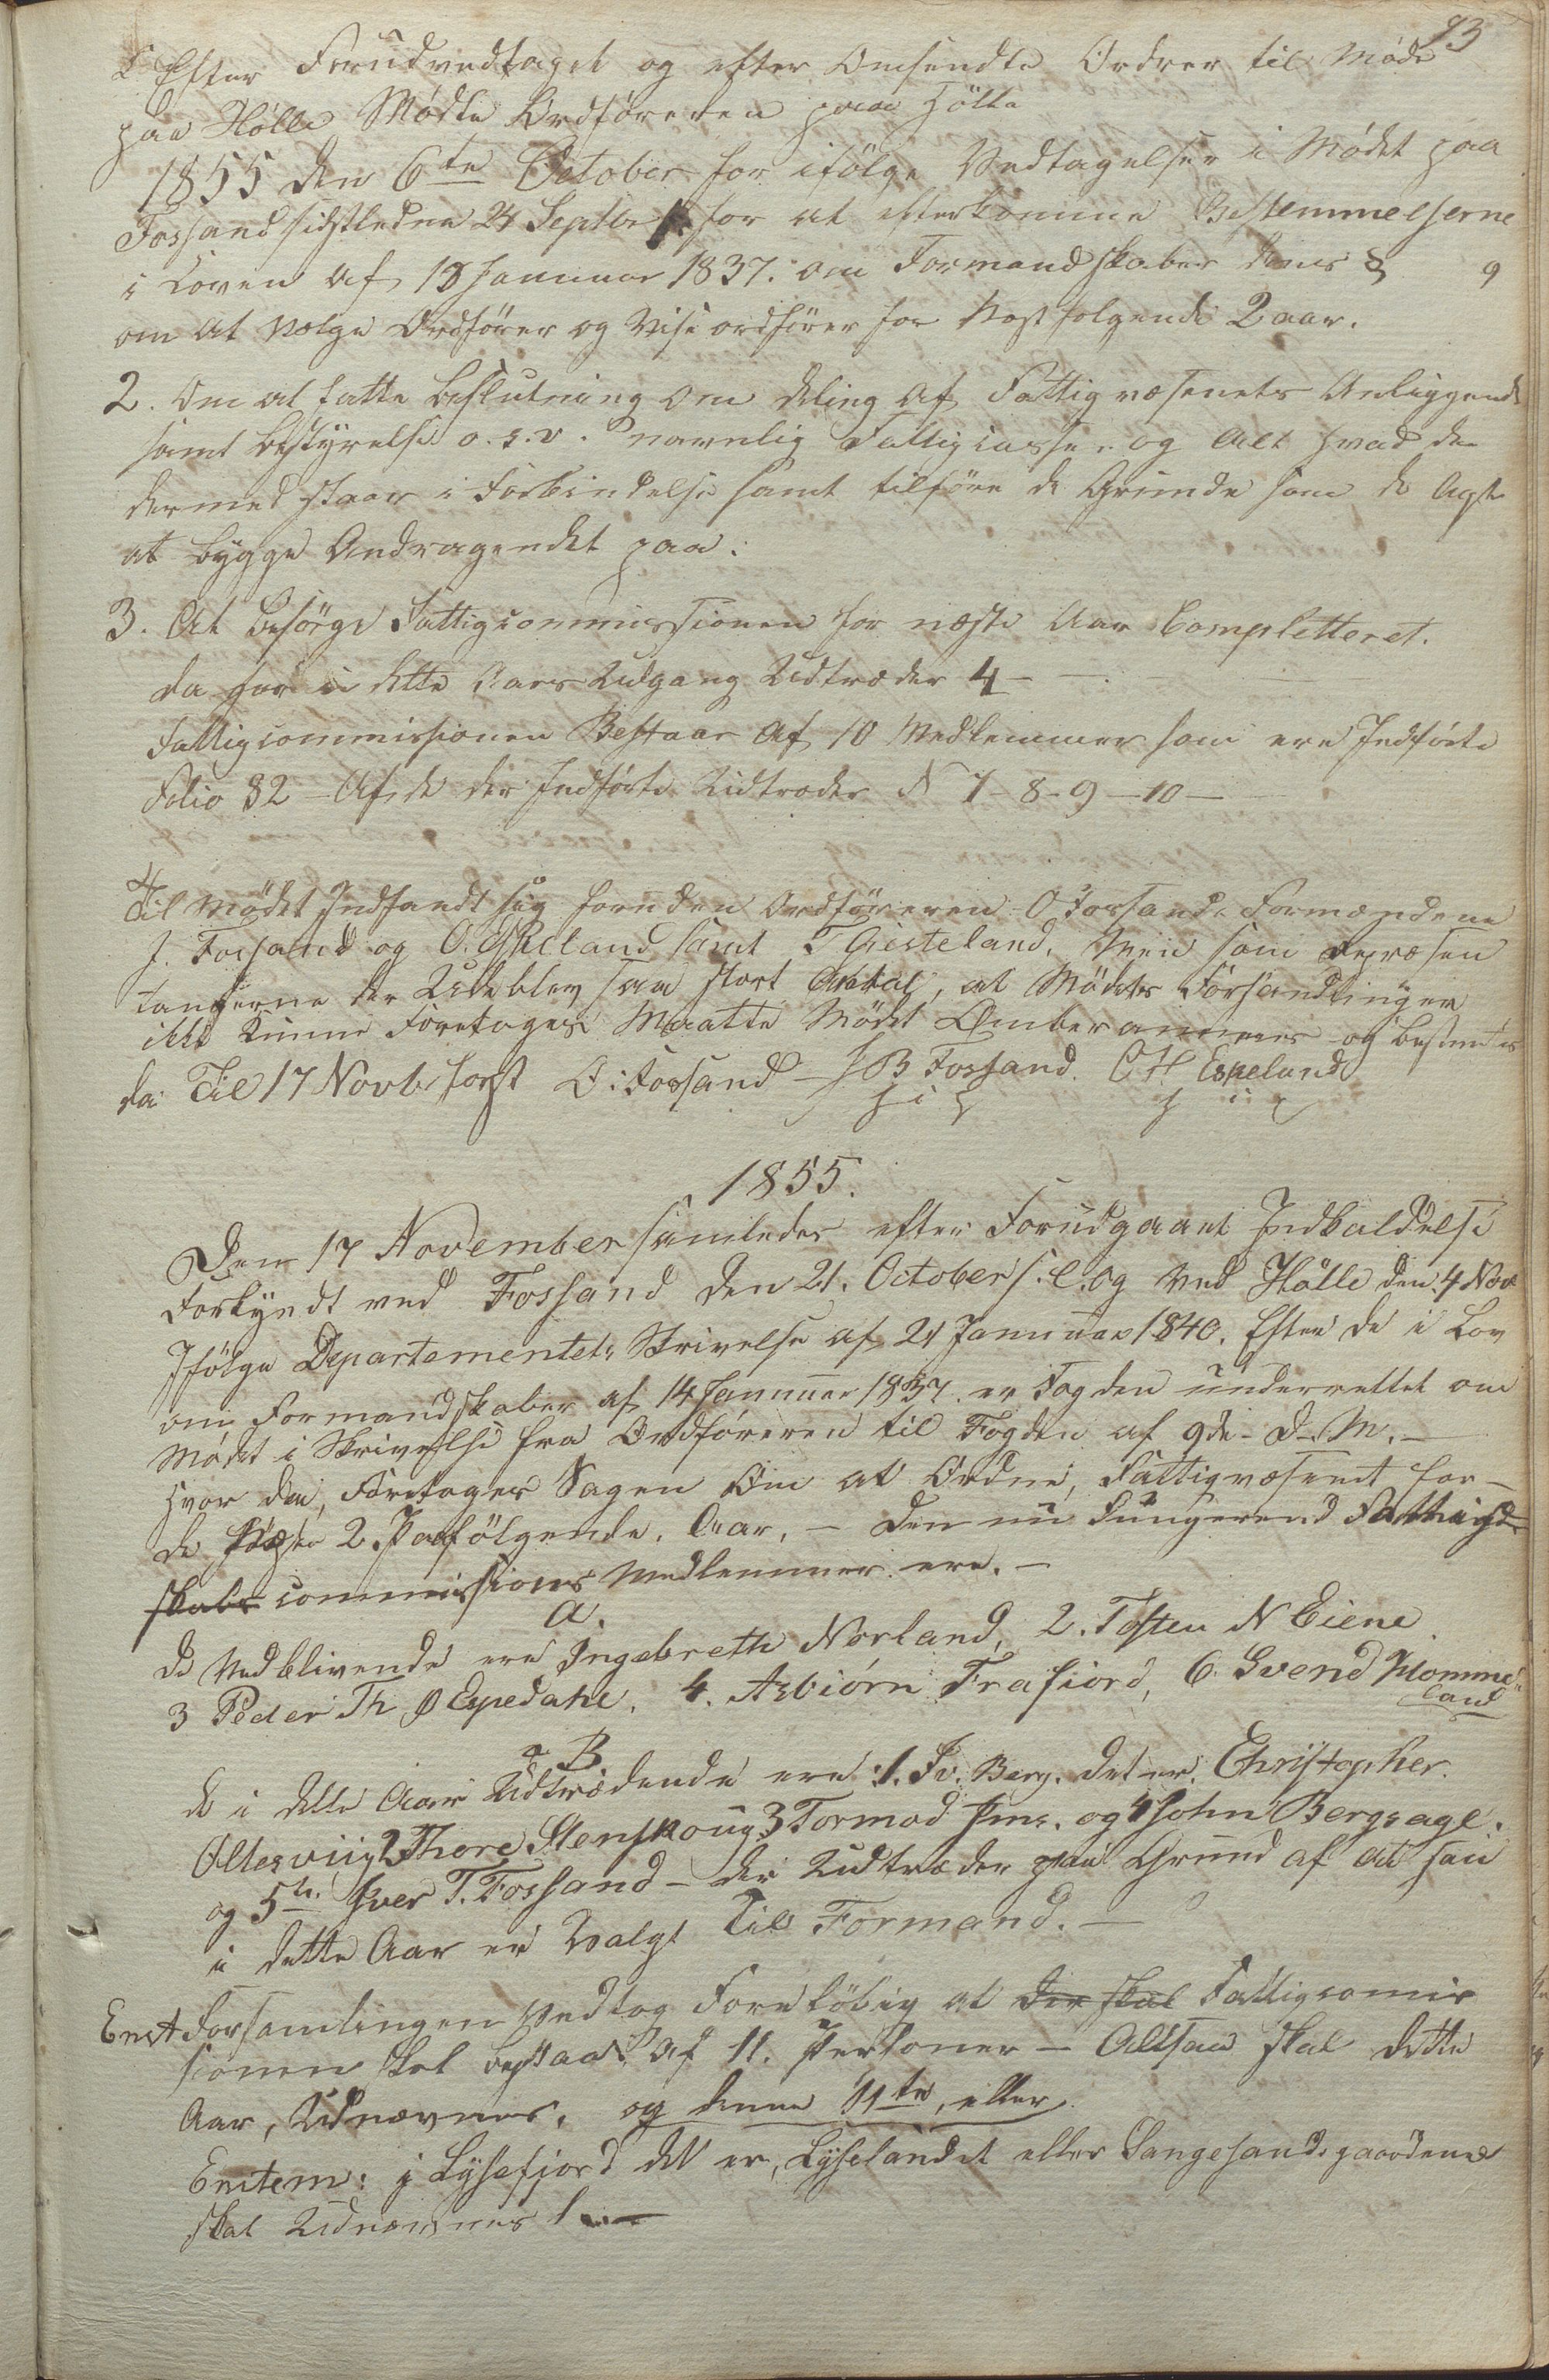 93
1 Efter Forudvedtaget og efter Omsendte Ordrer til Møde
paa Hølle Mødte Ordføreren paa Hølle
1855 den 6te October for ifølge Vedtagelser i Mødet paa
Fossand sidstledne 24 Septbr for at efterkomme Bestemmelserne
i Loven af 13 Januar 1837. om Formandskaber dens § 9
om at vælge Ordfører og Vise ordfører for Næstfølgende 2 aar.
2. Om at fatte beslutning om deling af Fattigvæsenets Anliggende
samt bestyrelse o.s.v. navnlig Fattigcasse. og Alt hvad der
dermed staar i Forbindelse samt tilføre de Grunde som de Agte
at bygge Andragendet paa:
3. At besørge Fattigcommissionen for næste Aar Completteret.
da her i dette Aars Udgang Udtræder 4 -
Fattigcommissionen Bestaar Af 10 Medlemmer som ere Indførte
Folio 82 - Af de der Indførte Udtræder N 7 - 8 - 9 - 10 -
Til Mødet Indfandt sig foruden Ordføreren O Fossand. Formændene
J. Fossand og O. Eskeland samt T Giesteland, Men som Repræsen
tanterne der Udeblev saa stort Antal, at Mødets Forhandlinger
ikke kunne Foretages Maatte Mødet Omberammes og bestemtes
da Til 17 Novb. først O: Fossand - J B Fossand. O H Espeland
1855.
Den 17 November samledes efter Forudgaaet Indkaldelse
Forkyndt ved Fossand den 21. October s. e. og ved Hølle den 4 Nov
Ifølge Departementets Skrivelse af 21 Januar 1840. Efter de i Lov
om Formandskaber af 14 Januar 1837. er Fogden underrettet om
Mødet i Skrivelse fra Ordføreren til Fogden af 9de - d. M. -
hvor da, Foretages Sagen Om at Ordne, Fattigvæsenet for -
de Næste 2. Paafølgende. Aar. - Den nu Fungerend Fattigd-
skabs commissions Medlemmer. ere. -
a.
De Vedblivende ere Ingebreth Norland, 2. Tosten N Eiene
3 Peder Th Ø Espedahl. 4. Asbiørn Frafiord, 6. Svend Momme-
land
B
de i dette Aar Udtrædende ere: 1. Iv. Berg. det er. Christopher.
Oltesviig 2 Thore Stenskoug 3 Tormod Hms. og 4 John Bergsagl.
og 5te Iver T. Fossand - der Udtræder paa Grund af at han
i dette Aar er Valgt Til Formand. -
Enst Forsamlingen vedtog Foreløbig at der skal Fattigcomis
sionen skal bestaa af 11. Personer - Altsaa skal dette
Aar, Udnævnes. og denne 11te, eller
Enstem: i Lysefjord det er, Lyselandet eller Sangesandsgaardene
skal Udnævnes 1. -